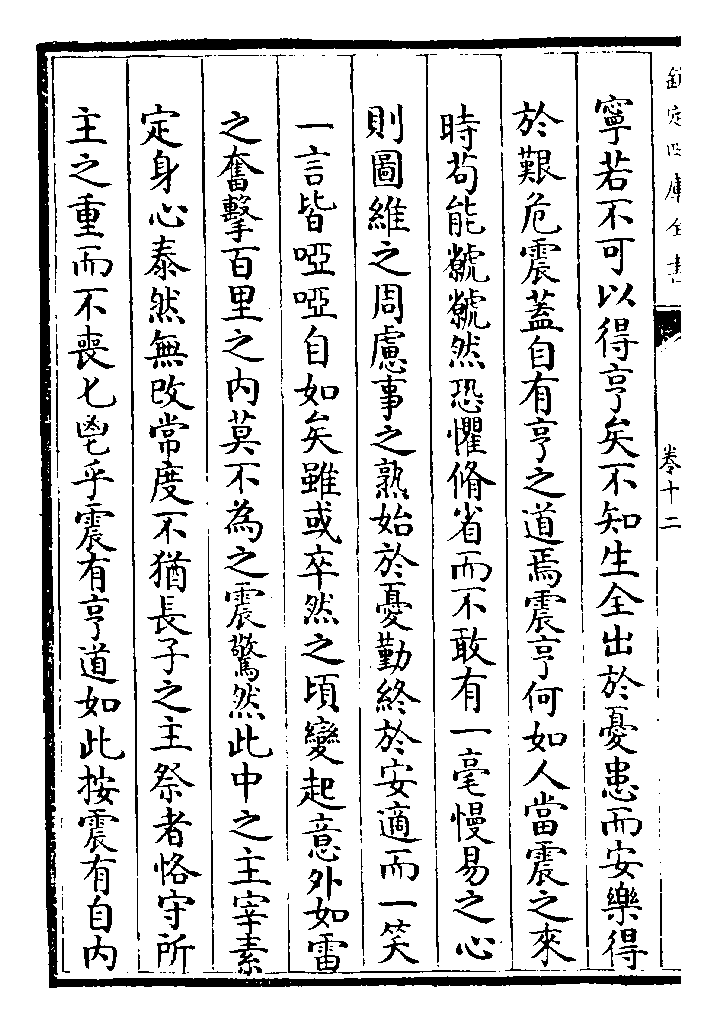 欽定四庫全書
卷十二
寧若不可以得亨矣不知生全出於憂患而安樂得
於艱危震蓋自有亨之道焉震亨何如人當震之來
時苟能虩虩然恐懼脩省而不敢有一毫慢易之心
則圖維之周慮事之熟始於憂勤終於安適而一笑
一言皆啞啞自如矣雖或卒然之頃變起意外如雷
之奮擊百里之內莫不為之震驚然此中之主宰素
定身心泰然無改常度不猶長子之主祭者恪守所
主之重而不喪匕鬯乎震有亨道如此按震有自內